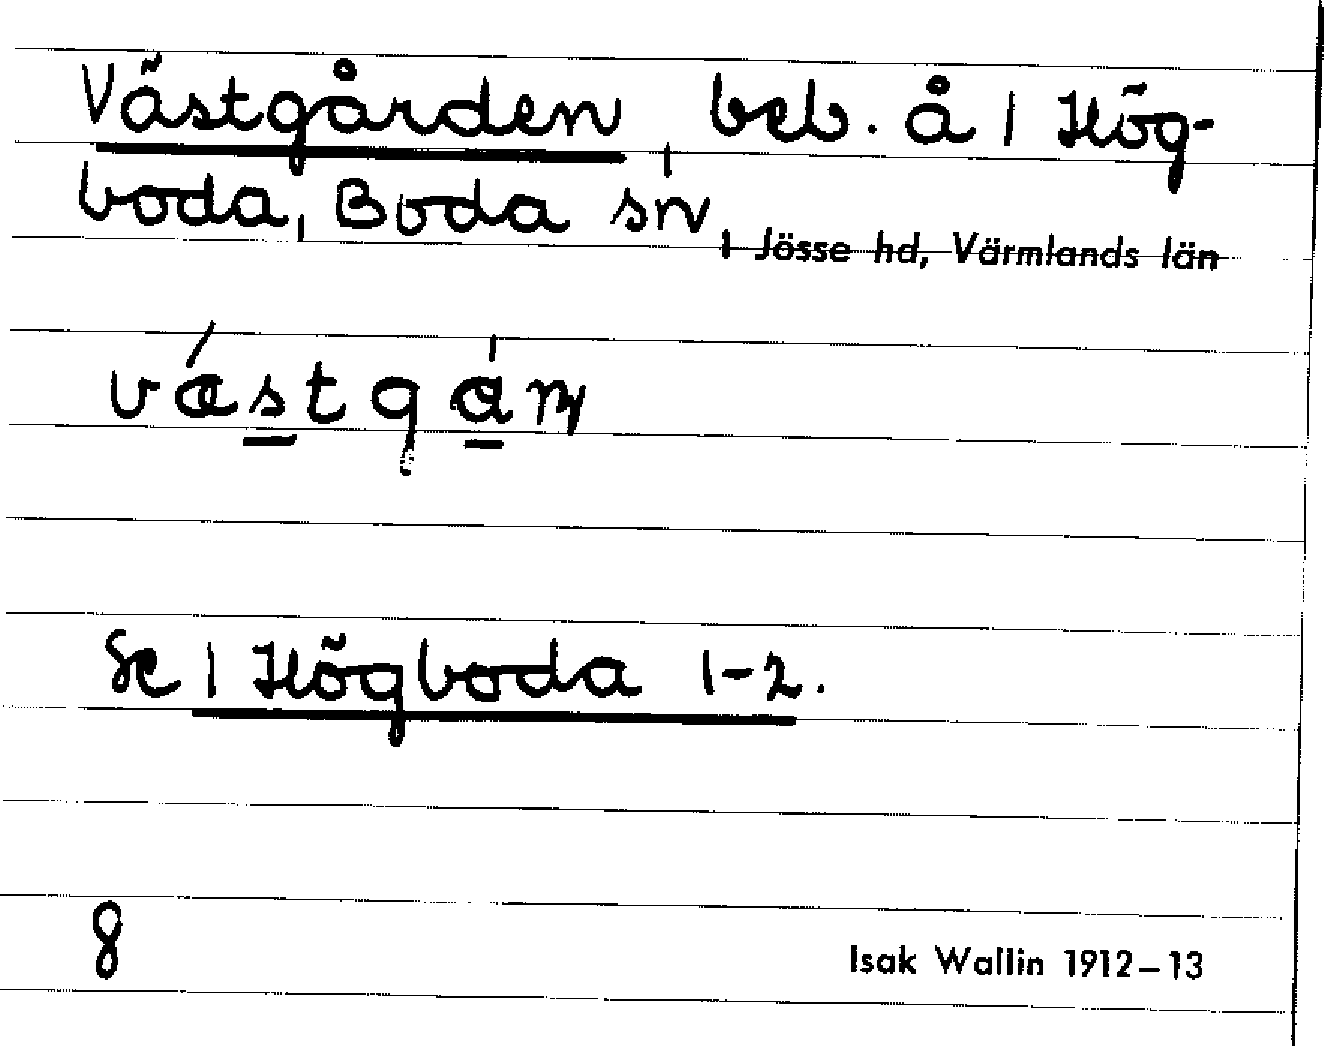 Västgården, beb. å 1 Hög-
boda, Boda sn, Jösse hd, Värmlands län
Se 1 Högboda 1-2.
8
Isak Wallin 1912–13